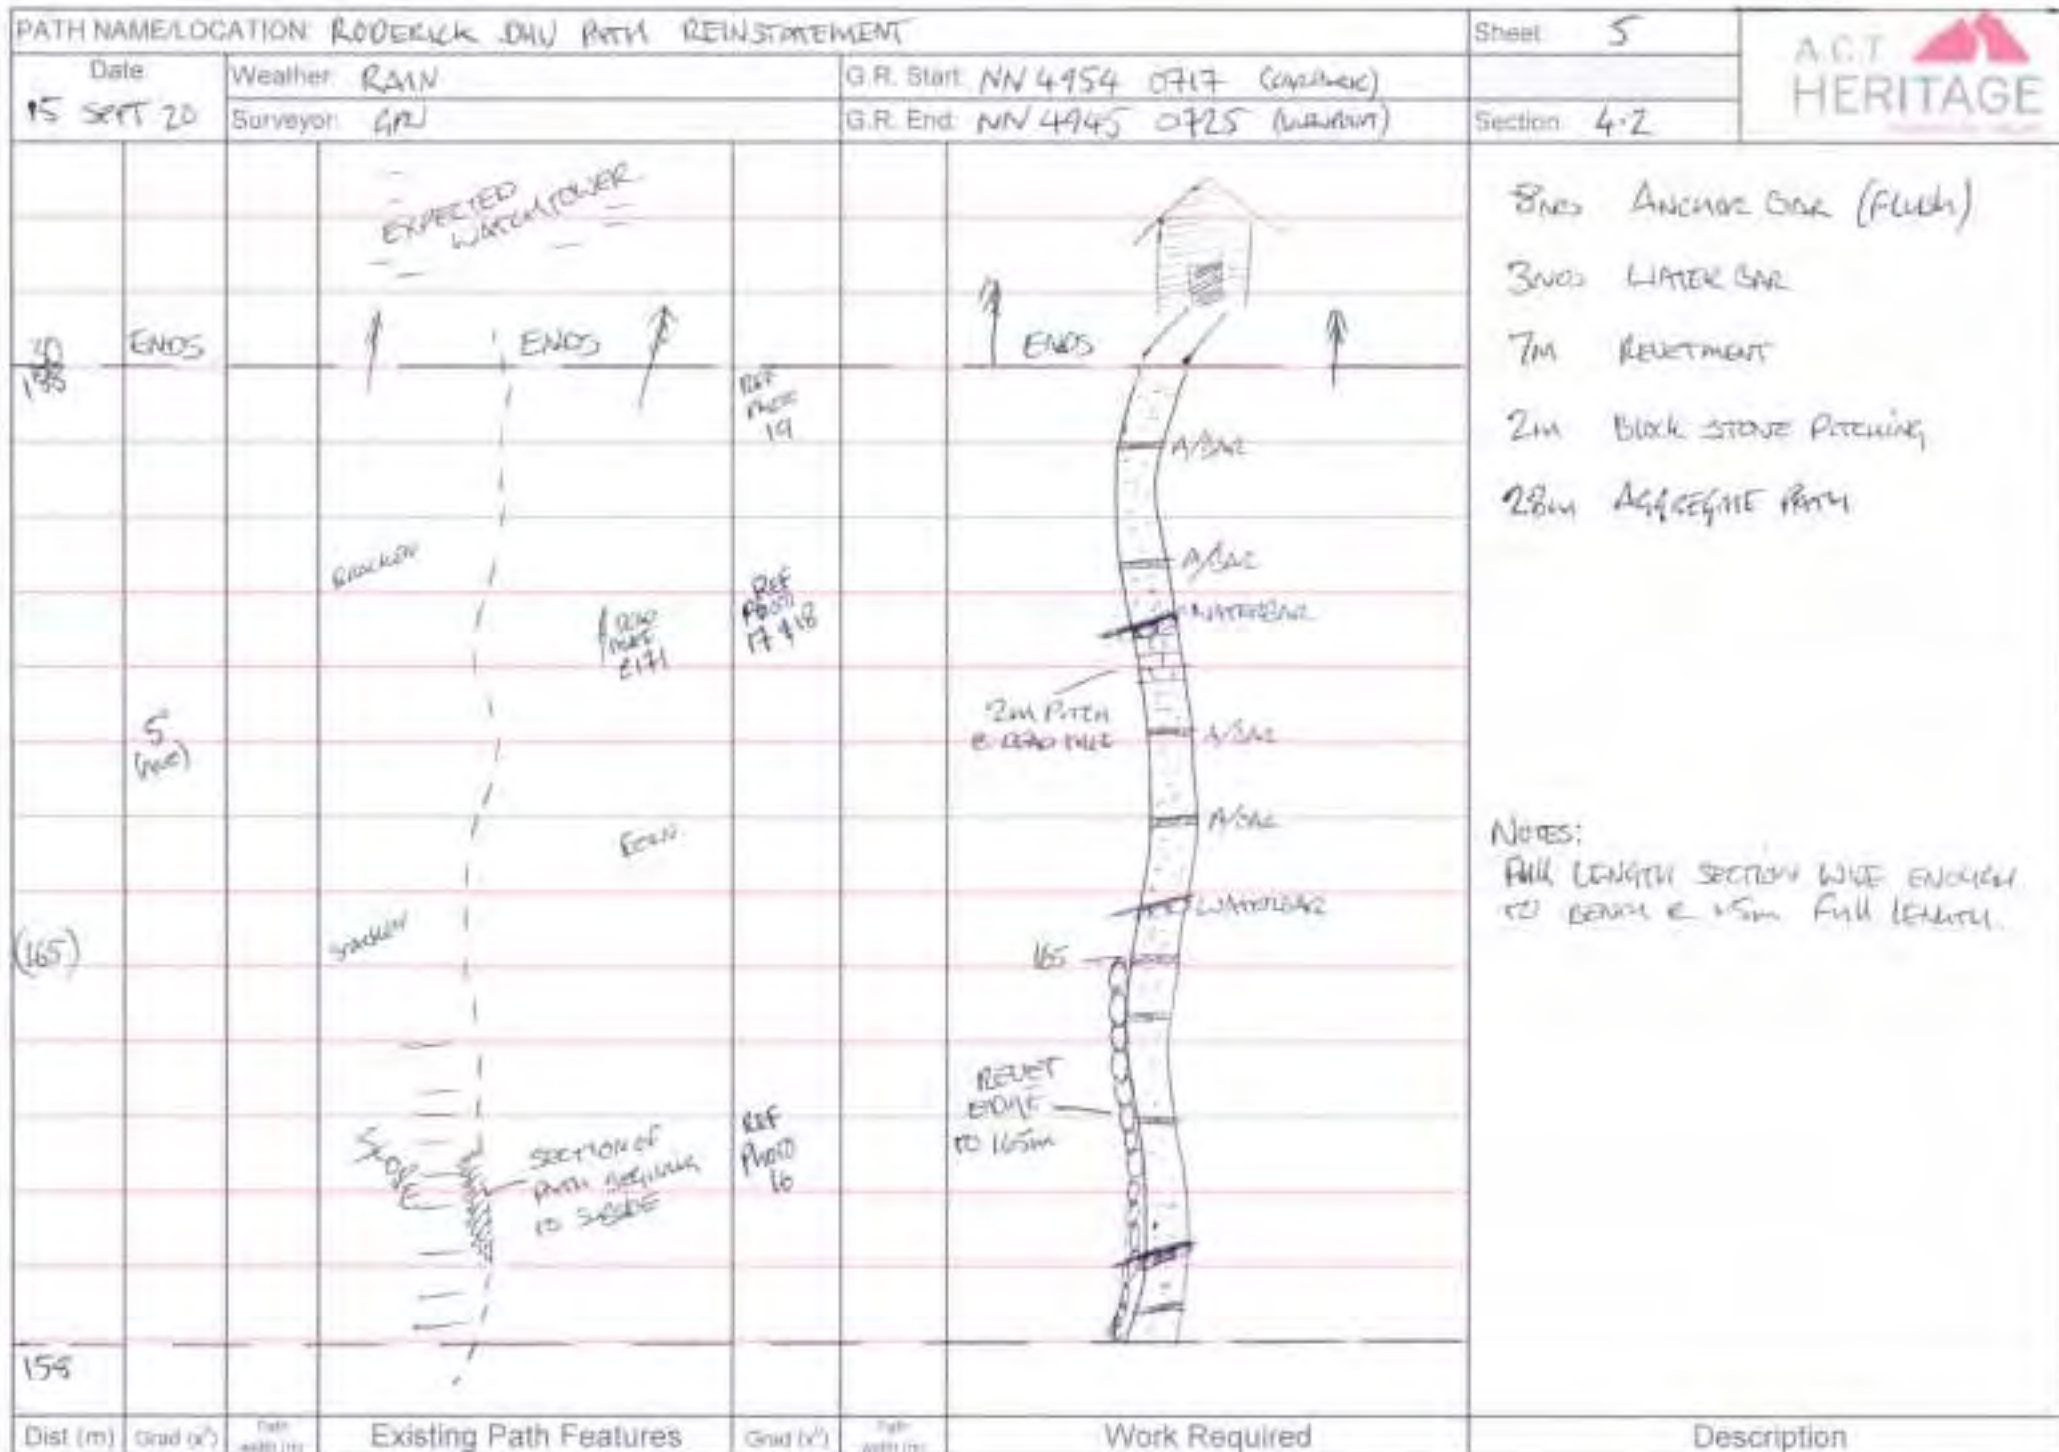 PATH NAME/LOCATION: RODERICK DHU PATH REINSTATEMENT
Sheet 5
A.C.T
HERITAGE
Date
15 SEPT 20
Weather: RAIN
G.R. Start: NN 4954 0717
Surveyor:
G.R. End: NN 4945 0725
Section 4.2
EXPECTED
WATCHTOWER
ENDS
ENDS
ENDS
REF
PHOTO
19
BRACKEN
REF
PHOTO
17 & 18
5
BRACKEN
(165)
SLOPE
SECTION OF
PATH BEGINING
TO SUBSIDE
REF
PHOTO
16
158
A/BAR
A/BAR
WATERBAR
2m PITCH
A/BAR
A/BAR
WATERBAR
165
REVET
EDGE
TO 165m
8NOS ANCHOR BAR (FLUSH)
3NOS WATER BAR
7M REVETMENT
2m BLOCK STONE PITCHING
28m AGGREGATE PATH
NOTES:
FULL LENGTH SECTION WIDE ENOUGH
TO BENCH @ 1.5m FULL LENGTH.
Dist (m)
Grad (x°)
Path width (m)
Existing Path Features
Grad (x°)
Path width (m)
Work Required
Description